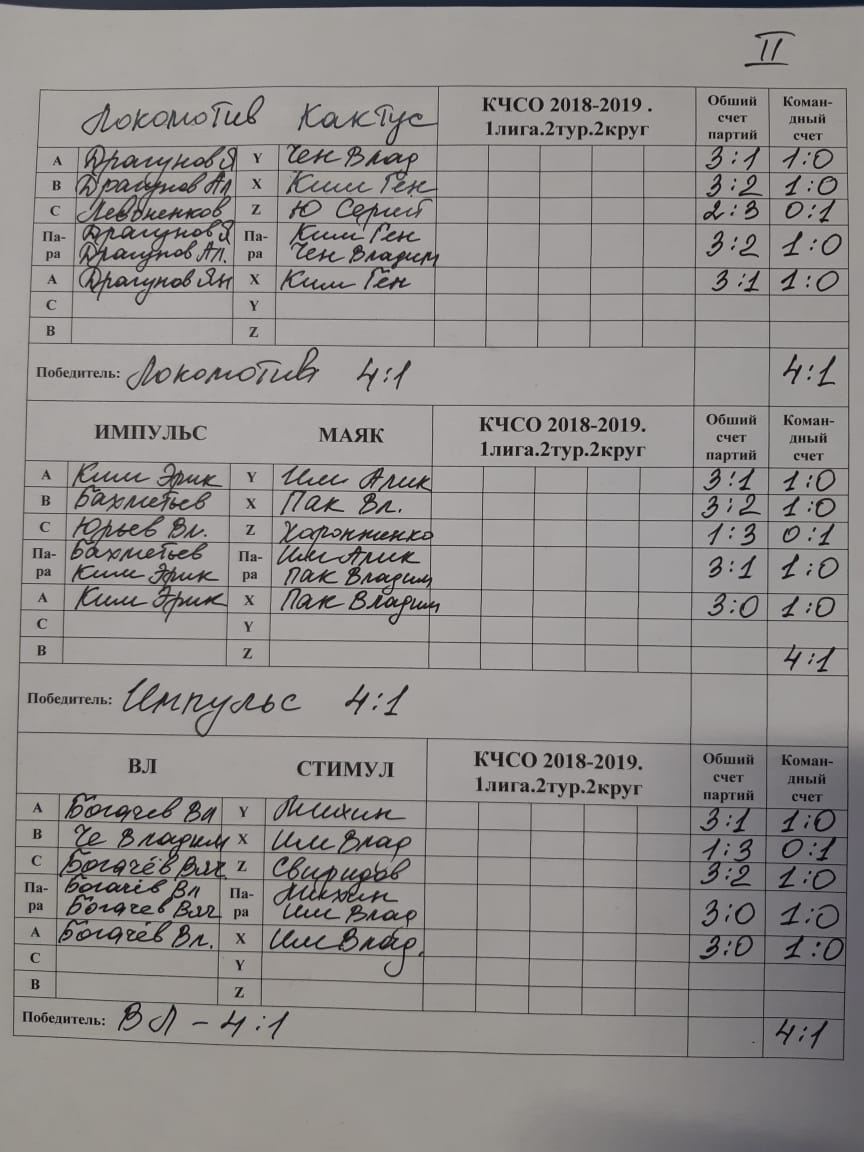 II
Локомотив Кактус КЧСО 2018-2019 . 1лига.2тур.2круг Обший счет партий Коман-дный счет
A Драгунов Я Y Чен Влад 3:1 1:0
B Драгунов Ал X Ким Ген 3:2 1:0
C Левоненков Z Ю Сергей 2:3 0:1
Па-ра Драгунов Я Драгунов Ал. Па-ра Ким Ген Чен Владим 3:2 1:0
A Драгунов Ян X Ким Ген 3:1 1:0
C Y
B Z
Победитель: Локомотив 4:1 4:1
ИМПУЛЬС МАЯК КЧСО 2018-2019. 1лига.2тур.2круг Обший счет партий Коман-дный счет
A Ким Эрик Y Им Алик 3:1 1:0
B Бахметьев X Пак Вл. 3:2 1:0
C Юрьев Вл. Z 1:3 0:1
Па-ра Бахметьев Ким Эрик Па-ра Им Алик Пак Владим 3:1 1:0
A Ким Эрик X Пак Владим 3:0 1:0
C Y
B Z 4:1
Победитель: Импульс 4:1
ВЛ СТИМУЛ КЧСО 2018-2019. 1лига.2тур.2круг Обший счет партий Коман-дный счет
A Богачев Вл Y 3:1 1:0
B Че Владим X Им Влад 1:3 0:1
C Богачёв Вяч. Z Свиридов 3:2 1:0
Па-ра Богачёв Вл Богачев Вяч Па-ра Им Влад 3:0 1:0
A Богачёв Вл. X Им Влад. 3:0 1:0
C Y
B Z
Победитель: ВЛ - 4:1 4:1